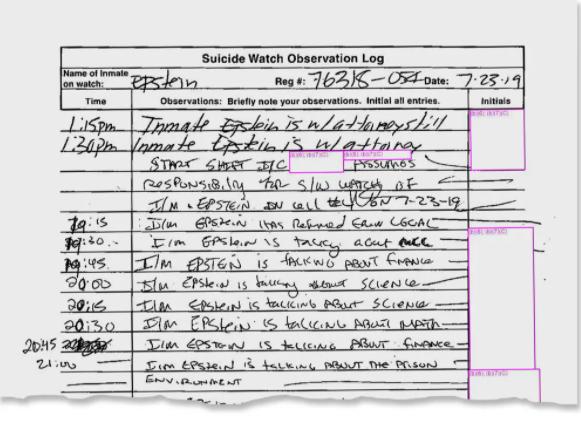 Suicide Watch Observation Log
Name of Inmate on watch: Epstein Reg #: 76318-054 Date: 7-23-19
Time Observations: Briefly note your observations. Initial all entries. Initials
1:15pm Inmate Epstein is w/attorney still
1:30pm Inmate Epstein is w/attorney
START SHIFT I/C (b)(6); (b)(7)(C) (b)(6); (b)(7)(C) ASSUMES
RESPONSIBILITY FOR S/W WATCH OF
I/M EPSTEIN IN cell ON 7-23-19
19:15 I/M EPSTEIN HAS Returned FROM LEGAL
19:30 I/M EPSTEIN is talking about
19:45 I/M EPSTEIN is TALKING ABOUT FINANCE
20:00 I/M EPSTEIN is talking about SCIENCE
20:15 I/M EPSTEIN is talking ABOUT SCIENCE
20:30 I/M EPSTEIN is talking ABOUT MATH
20:45 I/M EPSTEIN is talking ABOUT FINANCE
21:00 I/M EPSTEIN is talking ABOUT THE PRISON
ENVIRONMENT
(b)(6); (b)(7)(C)
(b)(6); (b)(7)(C)
(b)(6); (b)(7)(C)